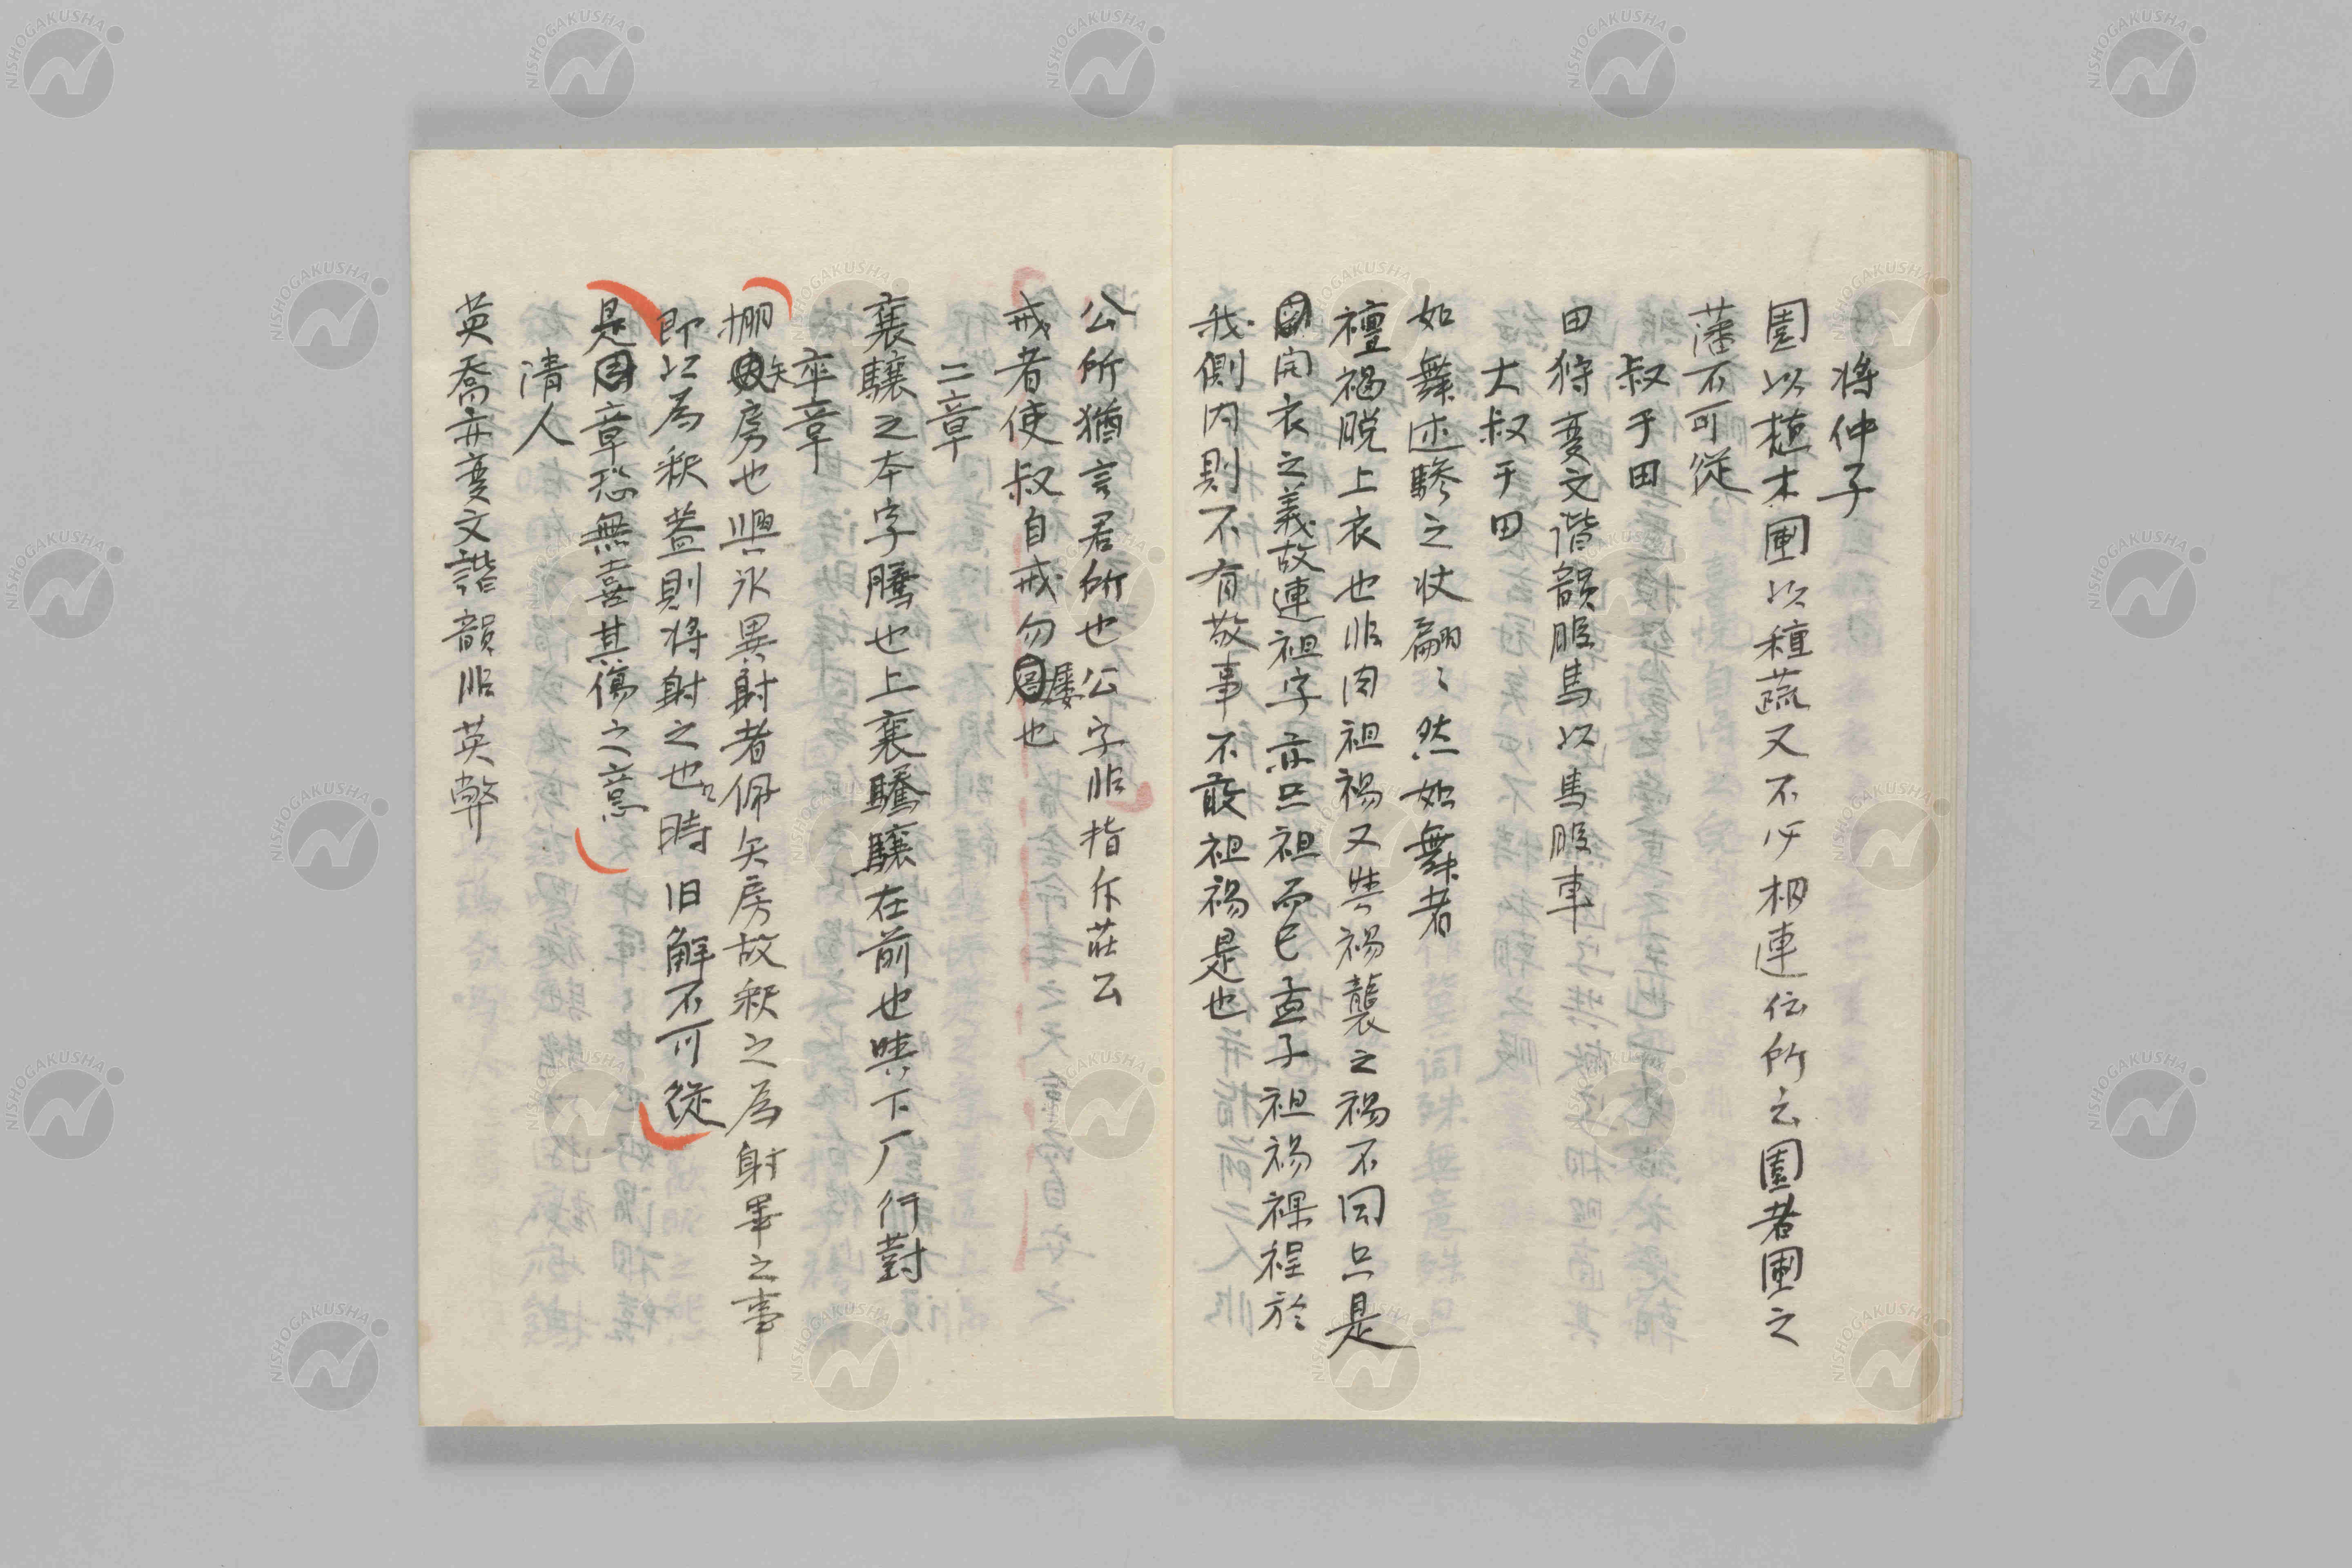 将仲子
園以植木圃以種蔬又不必相連位所云園者圃之
藩不可從
叔于田
田狩変文谐韻服馬以馬服車
大叔于田
如舞述驂之状翩〻然如舞者
襢裼脱上衣也非肉袒裼又与裼襲之裼不同只是
開衣之義故連袒字亦只袒而已孟子袒裼裸裎於
我側内則不有敬事不敢袒裼是也
公所猶言君所也公字非指斥莊公
戒者使叔自戒勿屡也
二章
襄驤之本字騰也上襄驤在前也與下厂行對
卒章
掤矢房也與氷異射者佩矢房故釈之為射畢之事
即以為釈蓋則将射之也時旧解不可從
是章恐無喜其傷之意
清人
英喬亦変文諧韻非英弊